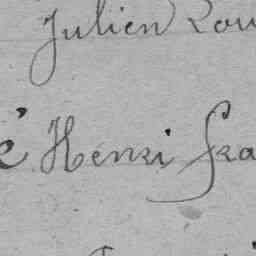 Julien Lou
é Henri Fra